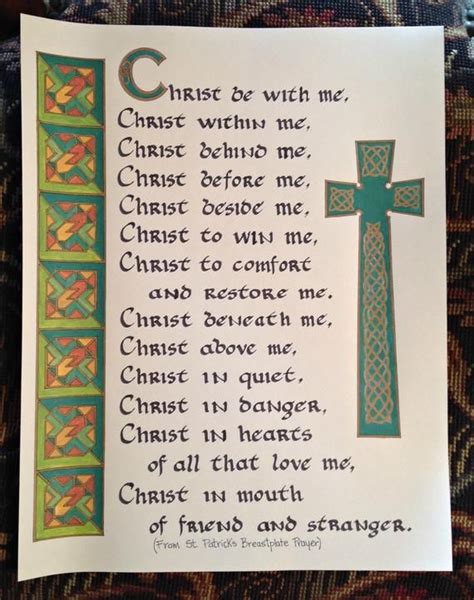 Christ be with me,
Christ within me,
Christ behind me,
Christ before me,
Christ beside me,
Christ to win me,
Christ to comfort
and restore me.
Christ beneath me,
Christ above me,
Christ in quiet,
Christ in danger,
Christ in hearts
of all that love me,
Christ in mouth
of friend and stranger.
(From St. Patrick's Breastplate Prayer)